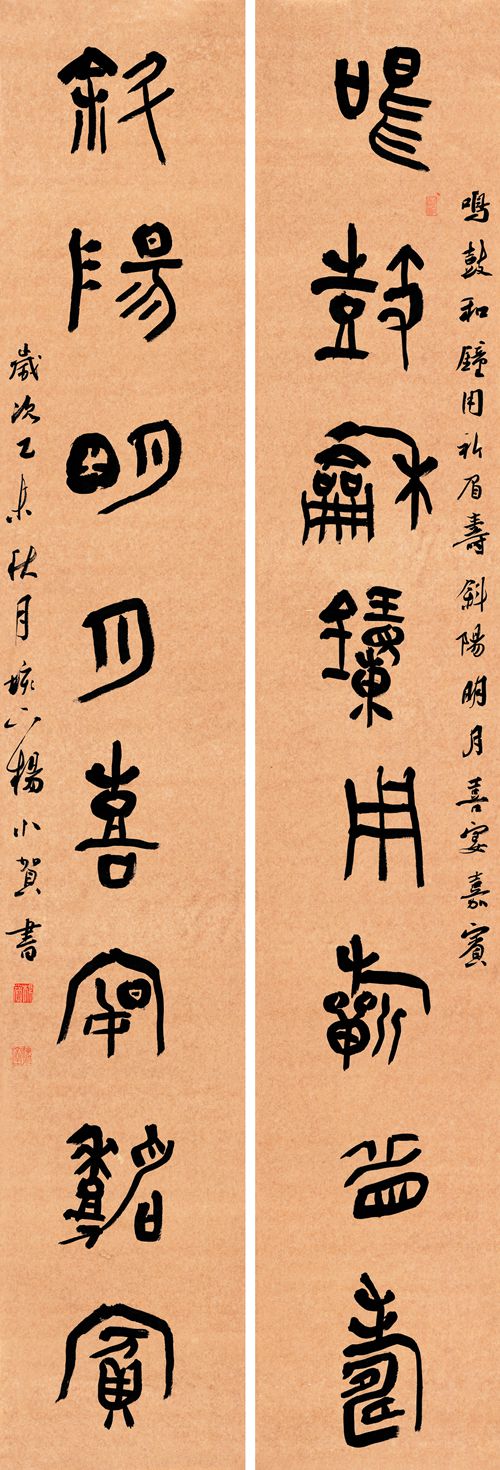 鳴鼓和鐘用祈眉壽斜陽明月喜宴嘉賓
鳴鼓龢鐘用祈眉壽
斜陽明月喜宴嘉賓
歲次乙未秋月垓下楊小賀書